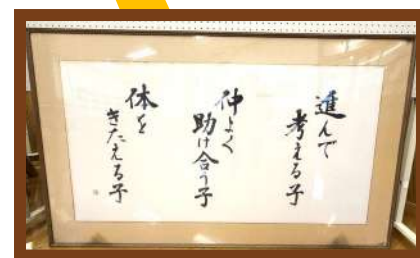 進んで
考える子
仲よく
助け合う子
体を
きたえる子